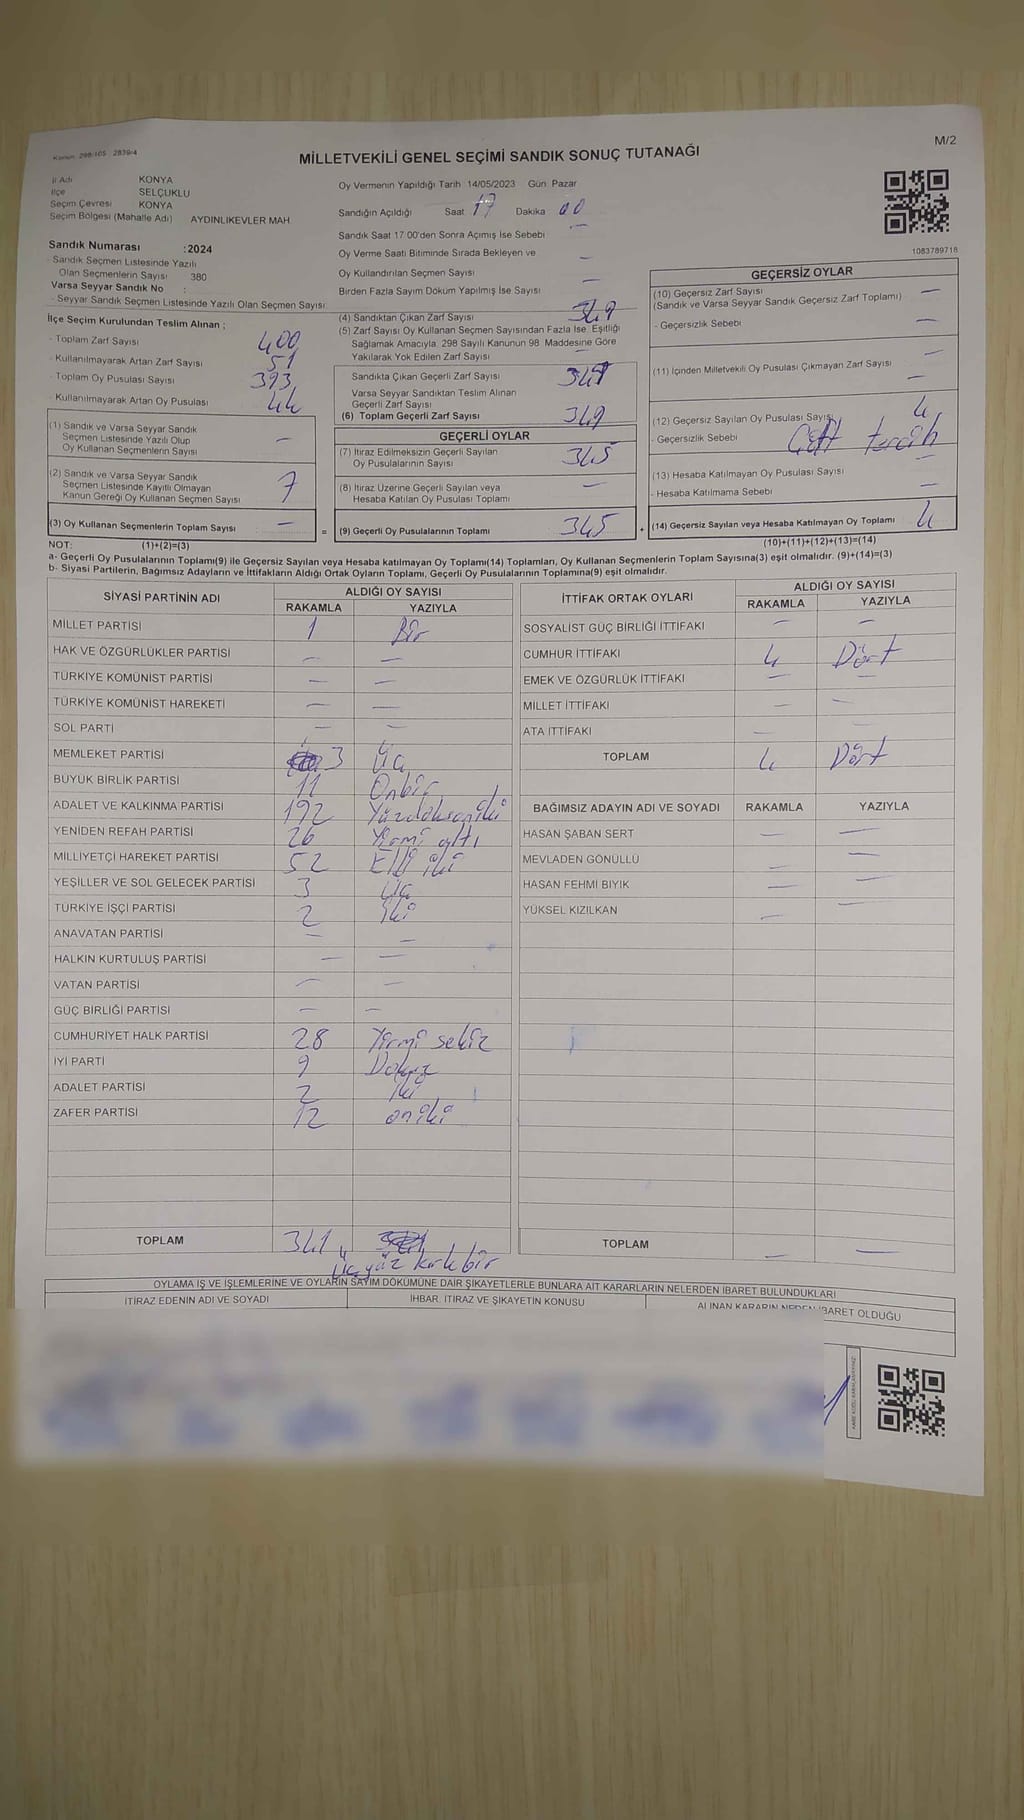 Kanun: 298/105 2839-4
M/2
MİLLETVEKİLİ GENEL SEÇİMİ SANDIK SONUÇ TUTANAĞI
İl Adı KONYA
İlçe SELÇUKLU
Seçim Çevresi KONYA
Seçim Bölgesi (Mahalle Adı) AYDINLIKEVLER MAH
Sandık Numarası :2024
- Sandık Seçmen Listesinde Yazılı
Olan Seçmenlerin Sayısı 380
Varsa Seyyar Sandık No :
- Seyyar Sandık Seçmen Listesinde Yazılı Olan Seçmen Sayısı:
İlçe Seçim Kurulundan Teslim Alınan ;
- Toplam Zarf Sayısı 400
- Kullanılmayarak Artan Zarf Sayısı 51
- Toplam Oy Pusulası Sayısı 393
- Kullanılmayarak Artan Oy Pusulası 44
(1) Sandık ve Varsa Seyyar Sandık
Seçmen Listesinde Yazılı Olup
Oy Kullanan Seçmenlerin Sayısı —
(2) Sandık ve Varsa Seyyar Sandık
Seçmen Listesinde Kayıtlı Olmayan
Kanun Gereği Oy Kullanan Seçmen Sayısı 7
(3) Oy Kullanan Seçmenlerin Toplam Sayısı —
Oy Vermenin Yapıldığı Tarih 14/05/2023 Gün: Pazar
Sandığın Açıldığı Saat 17 Dakika 00
Sandık Saat 17:00'den Sonra Açımış İse Sebebi —
Oy Verme Saati Bitiminde Sırada Bekleyen ve —
Oy Kullandırılan Seçmen Sayısı —
Birden Fazla Sayım Döküm Yapılmış İse Sayısı —
(4) Sandıktan Çıkan Zarf Sayısı 349
(5) Zarf Sayısı Oy Kullanan Seçmen Sayısından Fazla İse, Eşitliği
Sağlamak Amacıyla, 298 Sayılı Kanunun 98. Maddesine Göre
Yakılarak Yok Edilen Zarf Sayısı —
Sandıkta Çıkan Geçerli Zarf Sayısı 349
Varsa Seyyar Sandıktan Teslim Alınan
Geçerli Zarf Sayısı
(6) Toplam Geçerli Zarf Sayısı 349
GEÇERLİ OYLAR
(7) İtiraz Edilmeksizin Geçerli Sayılan
Oy Pusulalarının Sayısı 345
(8) İtiraz Üzerine Geçerli Sayılan veya
Hesaba Katılan Oy Pusulası Toplamı —
= (9) Geçerli Oy Pusulalarının Toplamı 345 +
1083789718
GEÇERSİZ OYLAR
(10) Geçersiz Zarf Sayısı
(Sandık ve Varsa Seyyar Sandık Geçersiz Zarf Toplamı) —
- Geçersizlik Sebebi —
(11) İçinden Milletvekili Oy Pusulası Çıkmayan Zarf Sayısı —
—
(12) Geçersiz Sayılan Oy Pusulası Sayısı 4
- Geçersizlik Sebebi Çift tercih
(13) Hesaba Katılmayan Oy Pusulası Sayısı —
- Hesaba Katılmama Sebebi —
(14) Geçersiz Sayılan veya Hesaba Katılmayan Oy Toplamı 4
NOT: (1)+(2)=(3)
(10)+(11)+(12)+(13)=(14)
a- Geçerli Oy Pusulaları Toplamı(9) ile Geçersiz Sayılan veya Hesaba katılmayan Oy Toplamı(14) Toplamları, Oy Kullanan Seçmenlerin Toplam Sayısına(3) eşit olmalıdır. (9)+(14)=(3)
b- Siyasi Partilerin, Bağımsız Adayların ve İttifakların Aldığı Ortak Oyların Toplamı, Geçerli Oy Pusulalarının Toplamına(9) eşit olmalıdır.
SİYASİ PARTİNİN ADI ALDIĞI OY SAYISI
RAKAMLA YAZIYLA
MİLLET PARTİSİ 1 Bir
HAK VE ÖZGÜRLÜKLER PARTİSİ — —
TÜRKİYE KOMÜNİST PARTİSİ — —
TÜRKİYE KOMÜNİST HAREKETİ — —
SOL PARTİ — —
MEMLEKET PARTİSİ 3 Üç
BÜYÜK BİRLİK PARTİSİ 11 Onbir
ADALET VE KALKINMA PARTİSİ 192 Yüzdoksaniki
YENİDEN REFAH PARTİSİ 26 Yirmi altı
MİLLİYETÇİ HAREKET PARTİSİ 52 Elli iki
YEŞİLLER VE SOL GELECEK PARTİSİ 3 Üç
TÜRKİYE İŞÇİ PARTİSİ 2 İki
ANAVATAN PARTİSİ — —
HALKIN KURTULUŞ PARTİSİ — —
VATAN PARTİSİ — —
GÜÇ BİRLİĞİ PARTİSİ — —
CUMHURİYET HALK PARTİSİ 28 Yirmi sekiz
İYİ PARTİ 9 Dokuz
ADALET PARTİSİ 2 İki
ZAFER PARTİSİ 12 oniki
TOPLAM 341
Üçyüz kırk bir
İTTİFAK ORTAK OYLARI ALDIĞI OY SAYISI
RAKAMLA YAZIYLA
SOSYALİST GÜÇ BİRLİĞİ İTTİFAKI — —
CUMHUR İTTİFAKI 4 Dört
EMEK VE ÖZGÜRLÜK İTTİFAKI — —
MİLLET İTTİFAKI — —
ATA İTTİFAKI — —
TOPLAM 4 Dört
BAĞIMSIZ ADAYIN ADI VE SOYADI RAKAMLA YAZIYLA
HASAN ŞABAN SERT — —
MEVLADEN GÖNÜLLÜ — —
HASAN FEHMİ BIYIK — —
YÜKSEL KIZILKAN — —
TOPLAM — —
OYLAMA İŞ VE İŞLEMLERİNE VE OYLARIN SAYIM DÖKÜMÜNE DAİR ŞİKAYETLERLE BUNLARA AİT KARARLARIN NELERDEN İBARET BULUNDUKLARI
İTİRAZ EDENİN ADI VE SOYADI İHBAR, İTİRAZ VE ŞİKAYETİN KONUSU ALINAN KARARIN NEDEN İBARET OLDUĞU